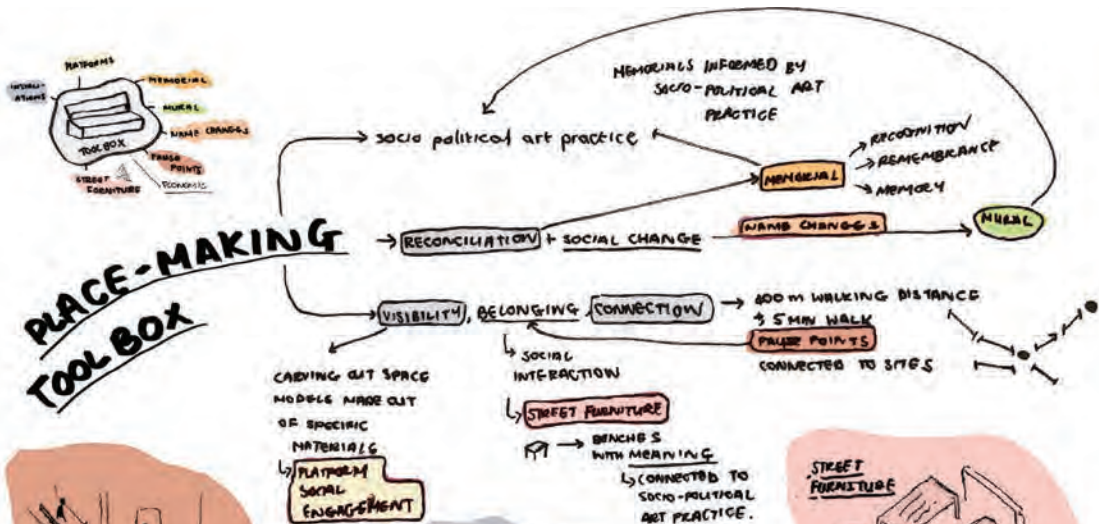 PLATFORMS
MEMORIAL
MURAL
NAME CHANGES
PAUSE
POINTS
ECONOMIC
STREET
FURNITURE
TOOLBOX
PLACE-MAKING
TOOLBOX
socio political art practice
MEMORIALS INFORMED BY
SOCIO-POLITICAL ART
PRACTICE
MEMORIAL
RECOGNITION
REMEMBRANCE
MEMORY
RECONCILIATION + SOCIAL CHANGE
NAME CHANGES
MURAL
VISIBILITY, BELONGING, CONNECTION
400 m WALKING DISTANCE
5 MIN WALK
PAUSE POINTS
CONNECTED TO SITES
CARVING OUT SPACE
MODELS MADE OUT
OF SPECIFIC
MATERIALS
PLATFORM
SOCIAL
ENGAGEMENT
SOCIAL
INTERACTION
STREET FURNITURE
BENCHES
WITH MEANING
CONNECTED TO
SOCIO-POLITICAL
ART PRACTICE.
STREET
FURNITURE